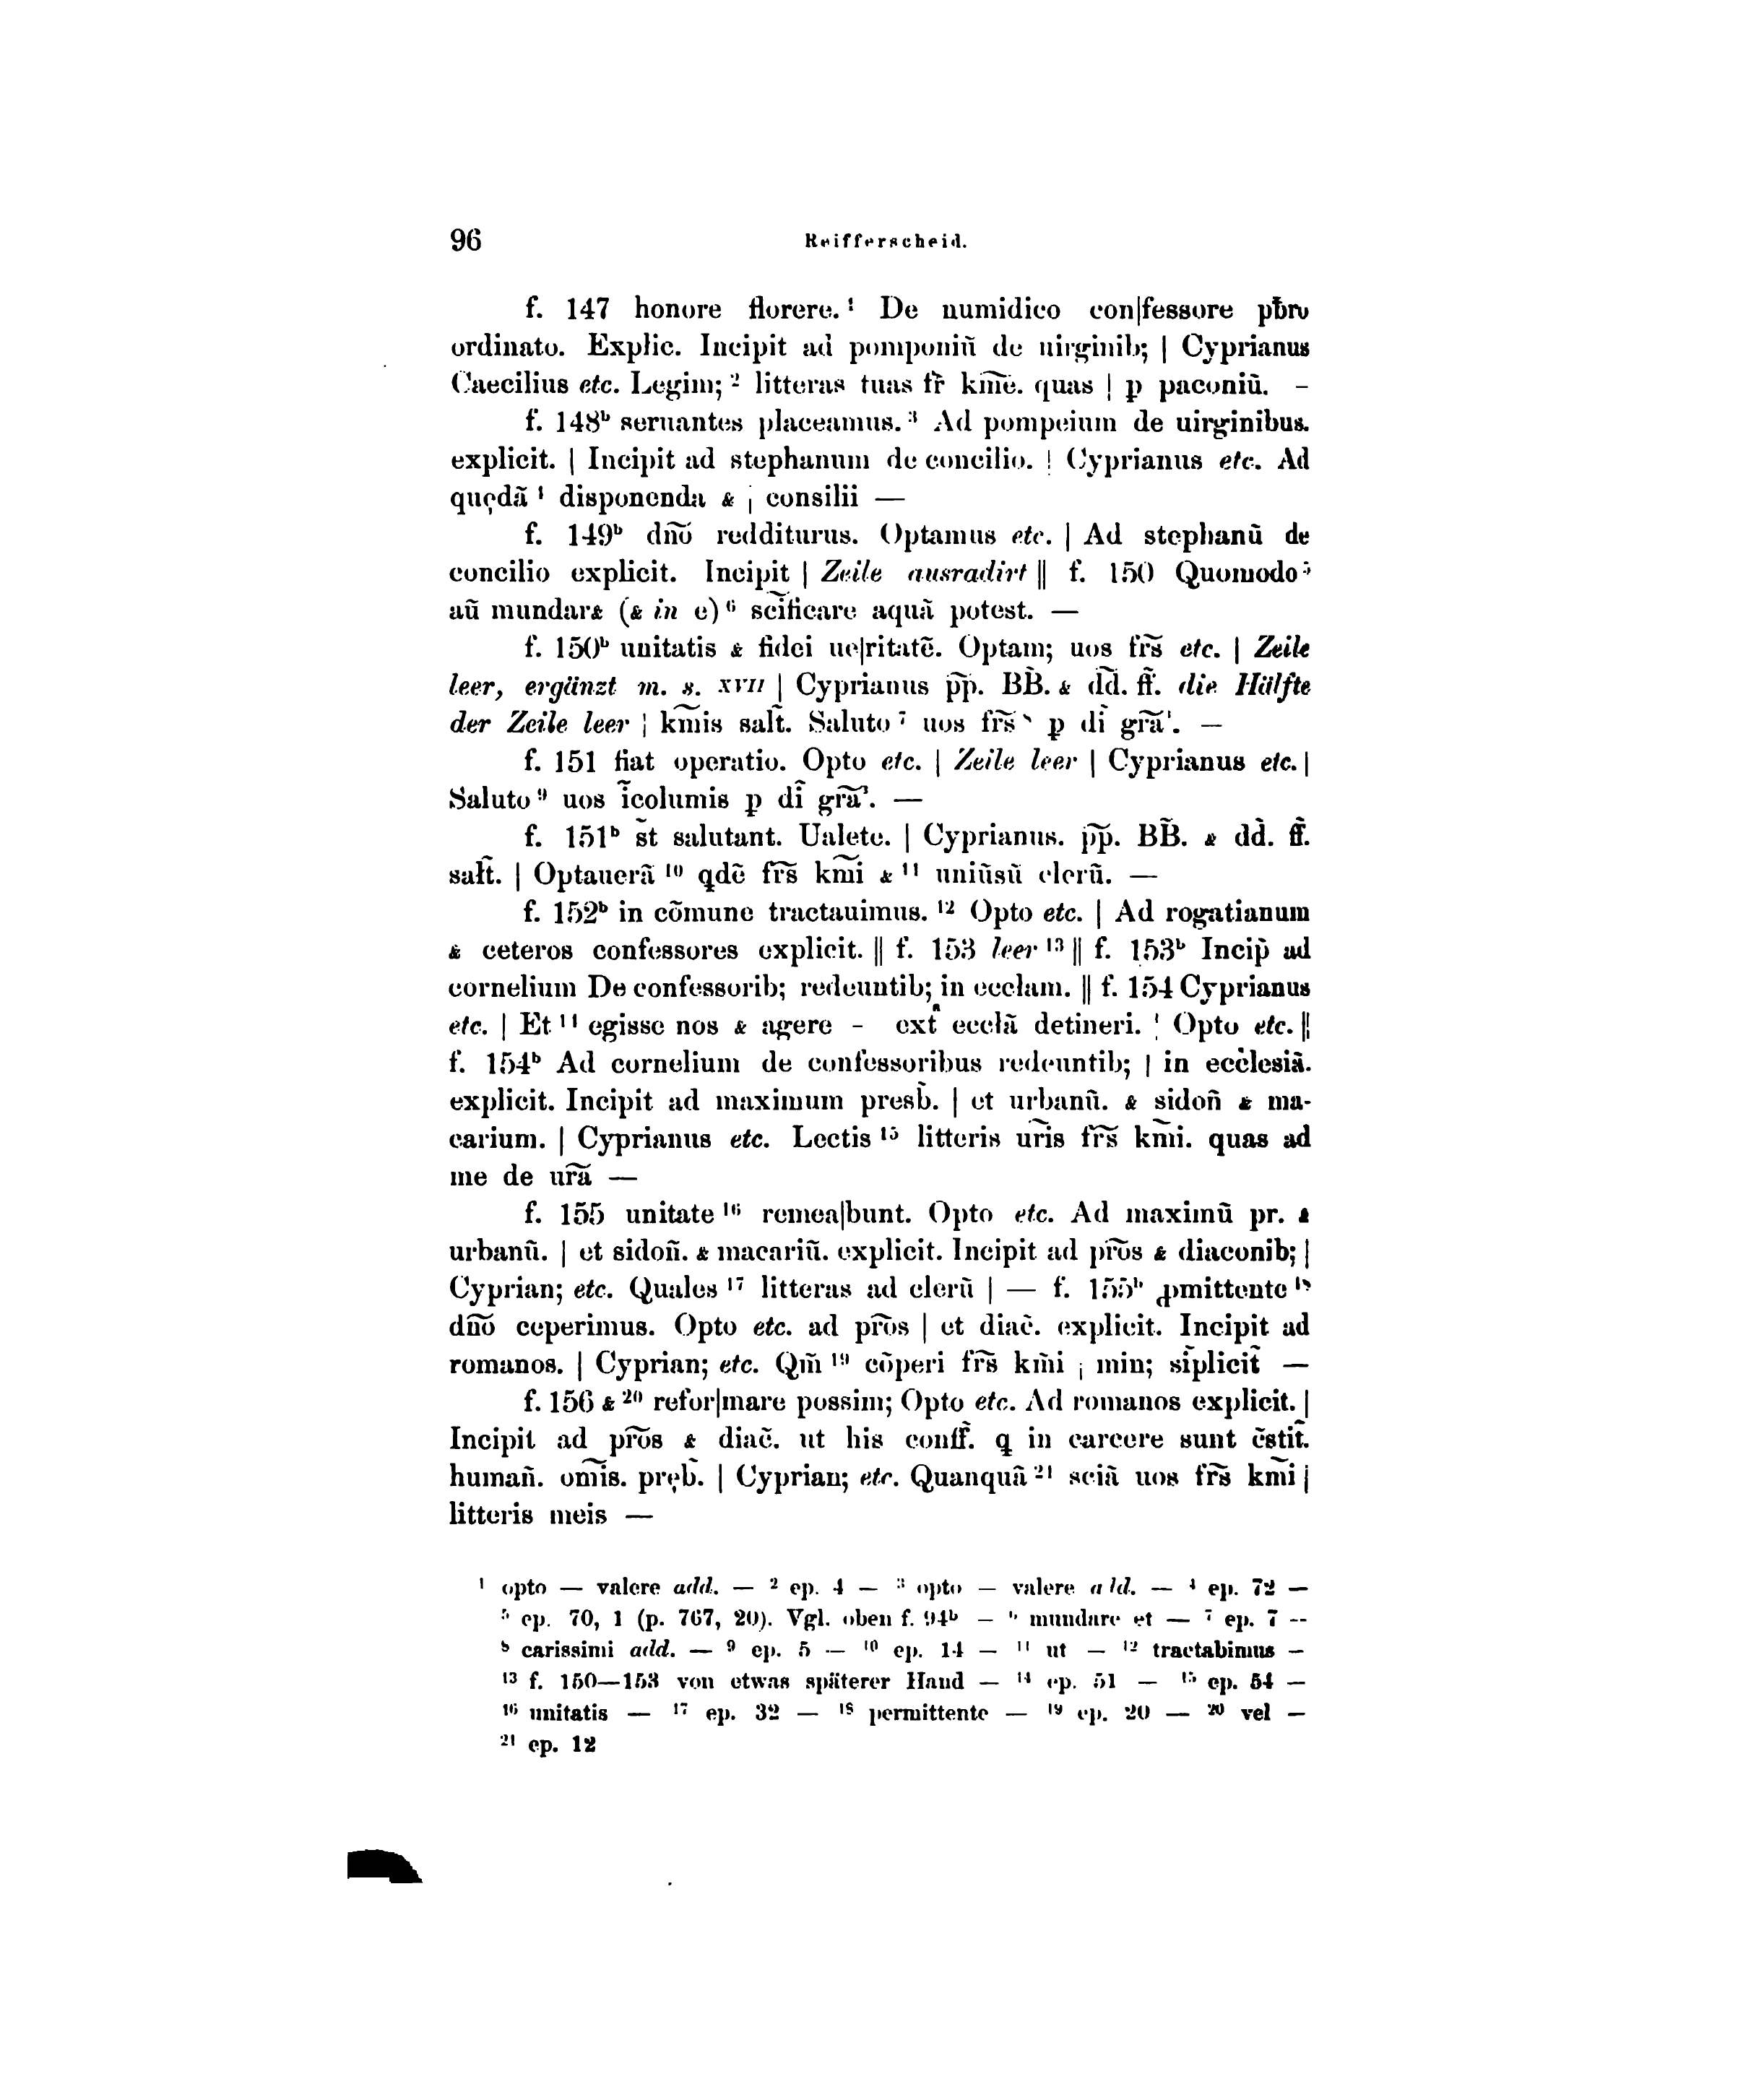 96 Reifferscheid.
f. 147 honore florere.¹ De numidico con|fessore pb̄ro
ordinato. Explic. Incipit ad pomponiū de uirginib; | Cyprianus
Caecilius etc. Legim;² litteras tuas fr̄ km̄ē. quas | ꝑ paconiū. –
f. 148ᵇ seruantes placeamus.³ Ad pompeium de uirginibus.
explicit. | Incipit ad stephanum de concilio. | Cyprianus etc. Ad
quędā⁴ disponenda & | consilii —
f. 149ᵇ dn̄ō redditurus. Optamus etc. | Ad stephanū de
concilio explicit. Incipit | Zeile ausradirt || f. 150 Quomodo⁵
aū mundar& (& in e)⁶ sc̄ificare aquā potest. —
f. 150ᵇ unitatis & fidei ue|ritatē. Optam; uos fr̄s etc. | Zeile
leer, ergänzt m. s. XVII | Cyprianus p̄p̄. BB̄. & d̄d̄. ff̄. die Hälfte
der Zeile leer | km̄is salt̄. Saluto⁷ uos fr̄s⁸ ꝑ dī gr̄a'. —
f. 151 fiat operatio. Opto etc. | Zeile leer | Cyprianus etc. |
Saluto⁹ uos īcolumis ꝑ dī gr̄a'. —
f. 151ᵇ s̄t salutant. Ualete. | Cyprianus. p̄p̄. BB̄. & dd̄. ff̄.
salt̄. | Optauerā¹⁰ qdē fr̄s km̄i &¹¹ uniūsū clerū. —
f. 152ᵇ in cōmune tractauimus.¹² Opto etc. | Ad rogatianum
& ceteros confessores explicit. || f. 153 leer¹³ || f. 153ᵇ Incip̄ ad
cornelium De confessorib; redeuntib; in eccłam. || f. 154 Cyprianus
etc. | Et¹⁴ egisse nos & agere – extᵃ eccłā detineri. | Opto etc. ||
f. 154ᵇ Ad cornelium de confessoribus redeuntib; | in ecclesiā.
explicit. Incipit ad maximum presb̄. | et urbanū. & sidon̄ & ma-
carium. | Cyprianus etc. Lectis¹⁵ litteris ur̄is fr̄s km̄i. quas ad
me de ur̄a —
f. 155 unitate¹⁶ remea|bunt. Opto etc. Ad maximū pr. &
urbanū. | et sidon̄. & macariū. explicit. Incipit ad pr̄os & diaconib; |
Cyprian; etc. Quales¹⁷ litteras ad clerū | — f. 155ᵇ ꝓmittente¹⁸
dn̄o ceperimus. Opto etc. ad pr̄os | et diac̄. explicit. Incipit ad
romanos. | Cyprian; etc. Qm̄¹⁹ cōperi fr̄s km̄i | min; sīplicit̄ —
f. 156 &²⁰ refor|mare possim; Opto etc. Ad romanos explicit. |
Incipit ad pr̄os & diac̄. ut his conff̄. q in carcere sunt c̄stit̄.
human̄. om̄is. pręb̄. | Cyprian; etc. Quanquā²¹ sciā uos fr̄s km̄i |
litteris meis —
¹ opto — valere add. — ² ep. 4 — ³ opto — valere add. — ⁴ ep. 72 —
⁵ ep. 70, 1 (p. 767, 20). Vgl. oben f. 94ᵇ — ⁶ mundare et — ⁷ ep. 7 —
⁸ carissimi add. — ⁹ ep. 5 — ¹⁰ ep. 14 — ¹¹ ut — ¹² tractabimus —
¹³ f. 150—153 von etwas späterer Hand — ¹⁴ ep. 51 — ¹⁵ ep. 54 —
¹⁶ unitatis — ¹⁷ ep. 32 — ¹⁸ permittente — ¹⁹ ep. 20 — ²⁰ vel —
²¹ ep. 12